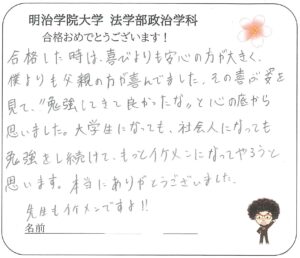 明治学院大学 法学部政治学科
合格おめでとうございます！
合格した時は、喜びよりも安心の方が大きく、
僕よりも父親の方が喜んでました。その喜ぶ姿を
見て、"勉強してきて良かったな"と心の底から
思いました。大学生になっても、社会人になっても
勉強をし続けて、もっとイケメンになってやろうと
思います。本当にありがとうございました。
先生もイケメンですよ!!
名前